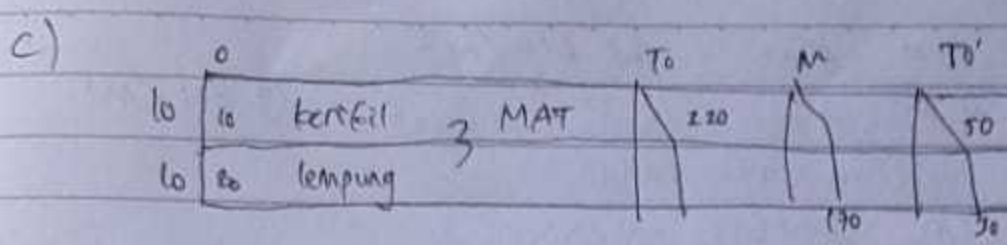 c)
0 To M To'
10 10 berpasil } MAT 220 50
10 20 lempung
170 90